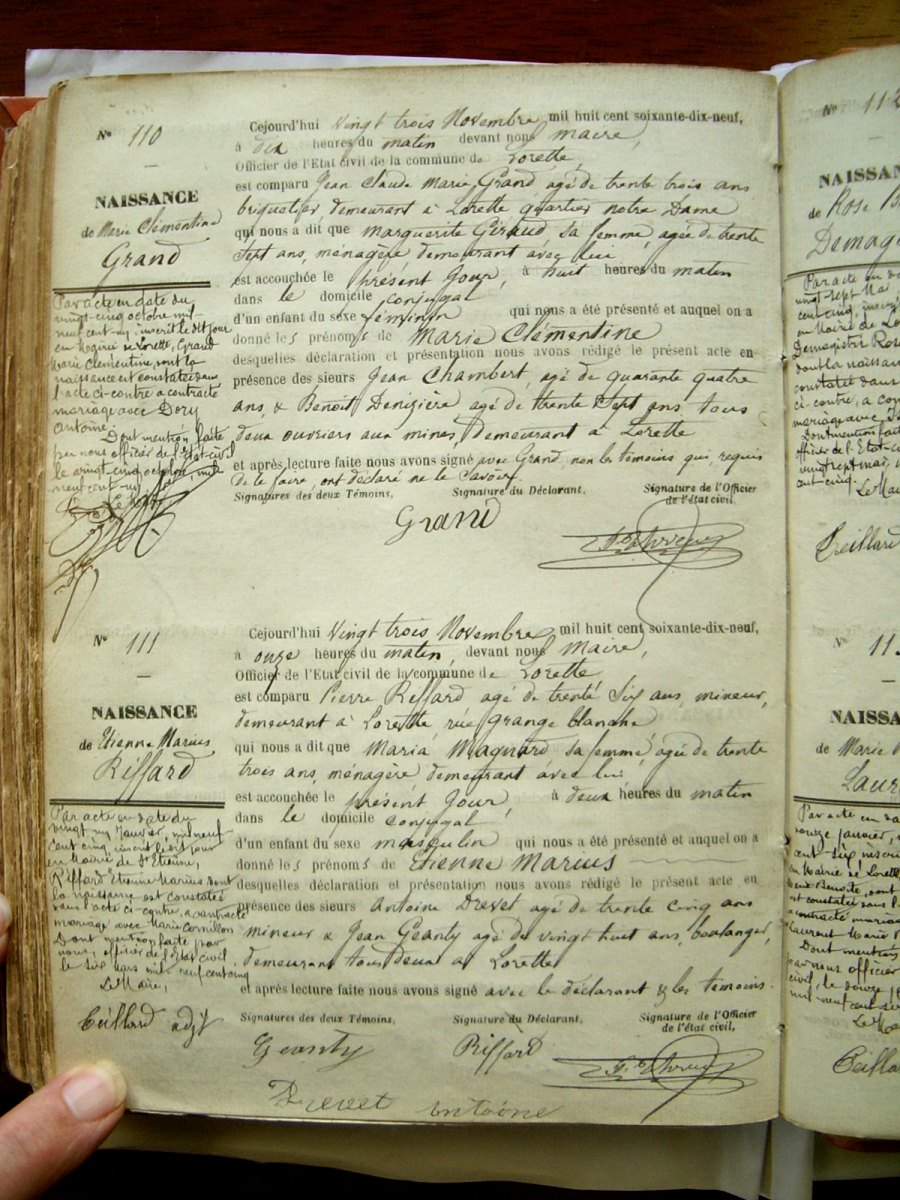 N° 110
NAISSANCE
de Marie Clémentine
Grand
Par acte en date du
vingt-cinq octobre mil
neuf cent-un, inscrit le dit jour
en Mairie de Lorette, Grand
Marie Clémentine, dont la
naissance est constatée dans
l'acte ci-contre a contracté
mariage avec Dory
Antoine.
Dont mention faite
par nous officier de l'Etat-civil
le vingt-cinq octobre mil
neuf cent-un
Cejourd'hui Vingt trois Novembre mil huit cent soixante-dix-neuf,
à dix heures du matin devant nous maire,
Officier de l'Etat civil de la commune de Lorette,
est comparu Jean Claude Marie Grand agé de trente trois ans
briquetier demeurant à Lorette quartier notre Dame
qui nous a dit que Marguerite Giraud sa femme, agée de trente
sept ans, ménagère demeurant avec lui
est accouchée le présent jour, à huit heures du matin
dans le domicile conjugal
d'un enfant du sexe féminin qui nous a été présenté et auquel on a
donné les prénoms de Marie Clémentine
desquelles déclaration et présentation nous avons rédigé le présent acte en
présence des sieurs Jean Chambert, agé de quarante quatre
ans, & Benoit Denizière agé de trente sept ans tous
deux ouvriers aux mines, demeurant à Lorette
et après lecture faite nous avons signé avec Grand, non les témoins qui, requis
de le faire, ont déclaré ne le savoir.
Signatures des deux Témoins, Signature du Déclarant, Signature de l'Officier
de l'état civil,
Grand
N° 111
NAISSANCE
de Etienne Marius
Riffard
Par acte en date du
vingt un Janvier, mil neuf
cent cinq, inscrit le dit jour
en Mairie de St Etienne,
Riffard Etienne Marius dont
la naissance est constatée
dans l'acte ci-contre, a contracté
mariage avec Marie Cornillon
Dont mention faite par
nous, officier de l'Etat civil,
le six mars mil neuf cent cinq
Le Maire,
Ceillard adjt
Cejourd'hui Vingt trois Novembre mil huit cent soixante-dix-neuf,
à onze heures du matin, devant nous Maire,
Officier de l'Etat civil de la commune de Lorette,
est comparu Pierre Riffard agé de trente six ans, mineur,
demeurant à Lorette, rue Grange blanche
qui nous a dit que Maria Magnard sa femme, agée de trente
trois ans, ménagère demeurant avec lui
est accouchée le présent jour, à deux heures du matin
dans le domicile conjugal
d'un enfant du sexe masculin qui nous a été présenté et auquel on a
donné les prénoms de Etienne Marius
desquelles déclaration et présentation nous avons rédigé le présent acte en
présence des sieurs Antoine Drevet agé de trente cinq ans
mineur & Jean Géanty agé de vingt huit ans, boulanger,
demeurant tous deux à Lorette
et après lecture faite nous avons signé avec le déclarant & les témoins.
Signatures des deux Témoins, Signature du Déclarant, Signature de l'Officier
de l'état civil,
Geanty Riffard
Drevet antoine
N° 112
NAISSANCE
de Rose
Par acte en
vingt sept Mai
en Mairie de
Demagistri Rose
dont la naissance
constatée dans
ci-contre, a
mariage avec
Dont mention fait
officier de l'Etat-c
vingt sept mai,
cent-cinq.
Ceillard
N° 11
NAISSA
de Marie
Laur
Par acte en da
douze janvier,
cent six
en Mairie de Lorett
contracté maria
Laurent Marie
Dont mention
par nous officier
civil, le douze
mil neuf cent six
Ceilla